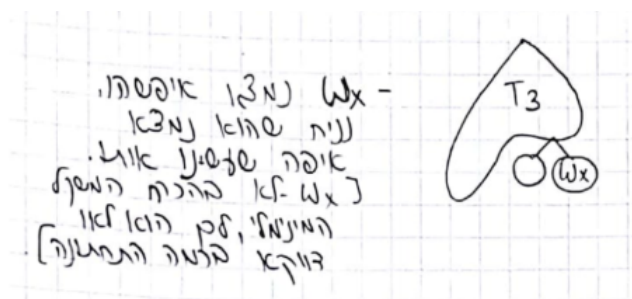 - Wx נמצא איפשהו.
נניח שהוא נמצא
איפה שעשינו אותו.
[Wx - לא בהכרח המשקל
המינימלי, לכן הוא לאו
דווקא ברמה התחתונה]
T3
Wx